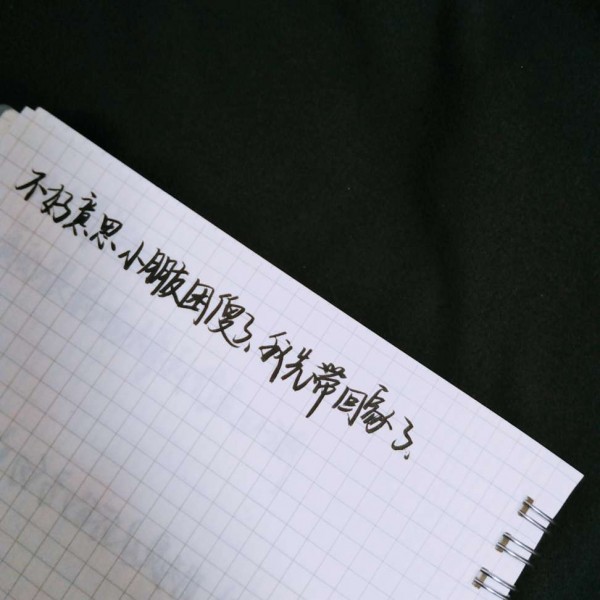 不好意思.小朋友困傻了.我先带回家了.